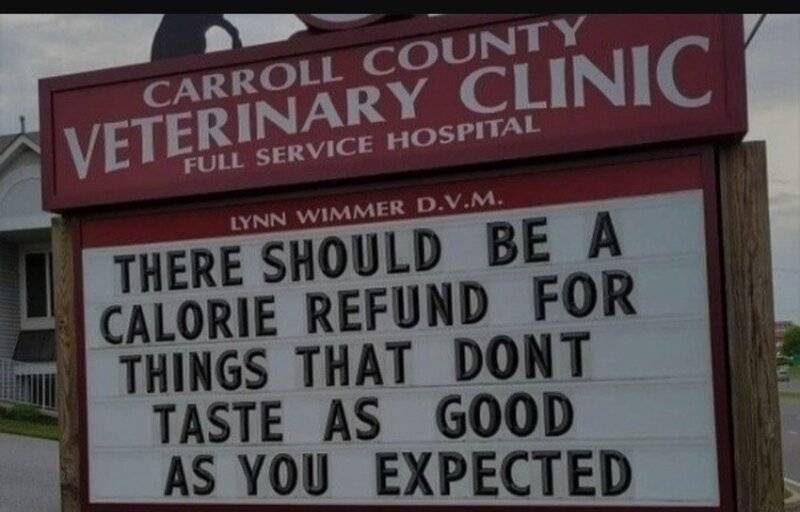 CARROLL COUNTY
VETERINARY CLINIC
FULL SERVICE HOSPITAL
LYNN WIMMER D.V.M.
THERE SHOULD BE A
CALORIE REFUND FOR
THINGS THAT DONT
TASTE AS GOOD
AS YOU EXPECTED